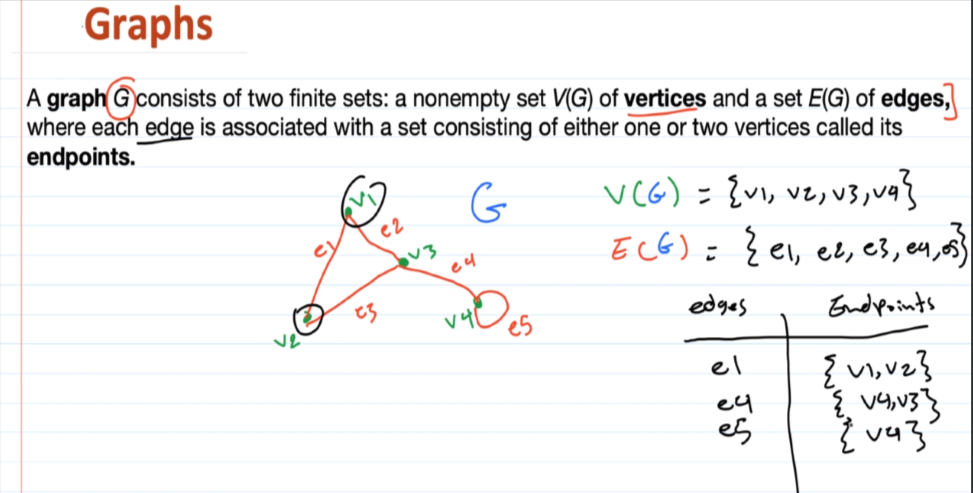 Graphs
A graph G consists of two finite sets: a nonempty set V(G) of vertices and a set E(G) of edges,
where each edge is associated with a set consisting of either one or two vertices called its
endpoints.
V(G) = {v1, v2, v3, v4}
E(G) = {e1, e2, e3, e4, e5}
G
v1
e2
e1
v3
e4
e3
v2
v4
e5
edges Endpoints
e1 {v1, v2}
e4 {v4, v3}
e5 {v4}